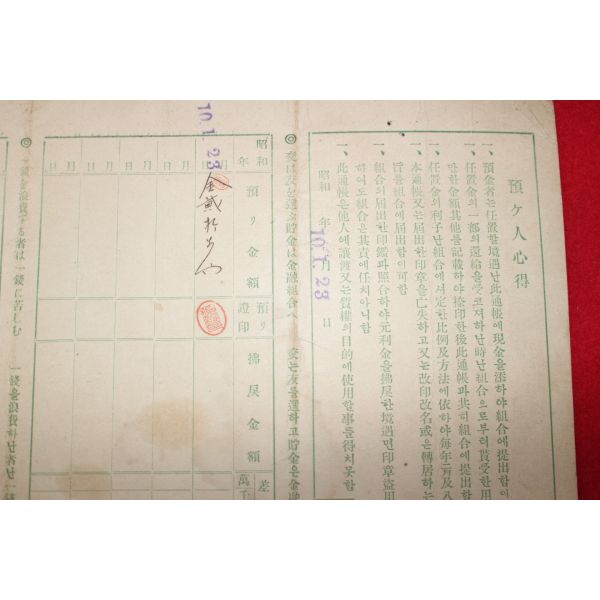 預ヶ人心得
一、預金者는任置할境遇난此通帳에現金을添하야組合에提出함이
一、任置金의一部의還給을受코져하난時난組合으로부터貰受한用
만한金額其他를記載하야捺印한後此通帳과共히組合에提出함
一、任置金의利子난組合에서定한比例及方法에依하야每年二月及八
一、本通帳又는届出한印章을亡失하고又는改印改名或은轉居하는
旨를組合에届出함이可함
一、組合의届出한印鑑과照合하야元利金을拂戾한境遇면印章盜用
하여도組合은其責에任치아니함
一、此通帳은他人에讓渡又는質權의目的에使用할事를得치못함
昭和 年 月 日
10.1.23
◎ 交は友を選ぶ貯金は金融組合へ 交는友를選하고貯金은金融
昭和 年
預リ金額
預リ證印
拂戾金額
差
萬千
月日
月日
月日
月日
月日
10.1.23
金貳拾
◎ 一錢を浪費する者は一錢に苦しむ 一錢을浪費하난者난一錢